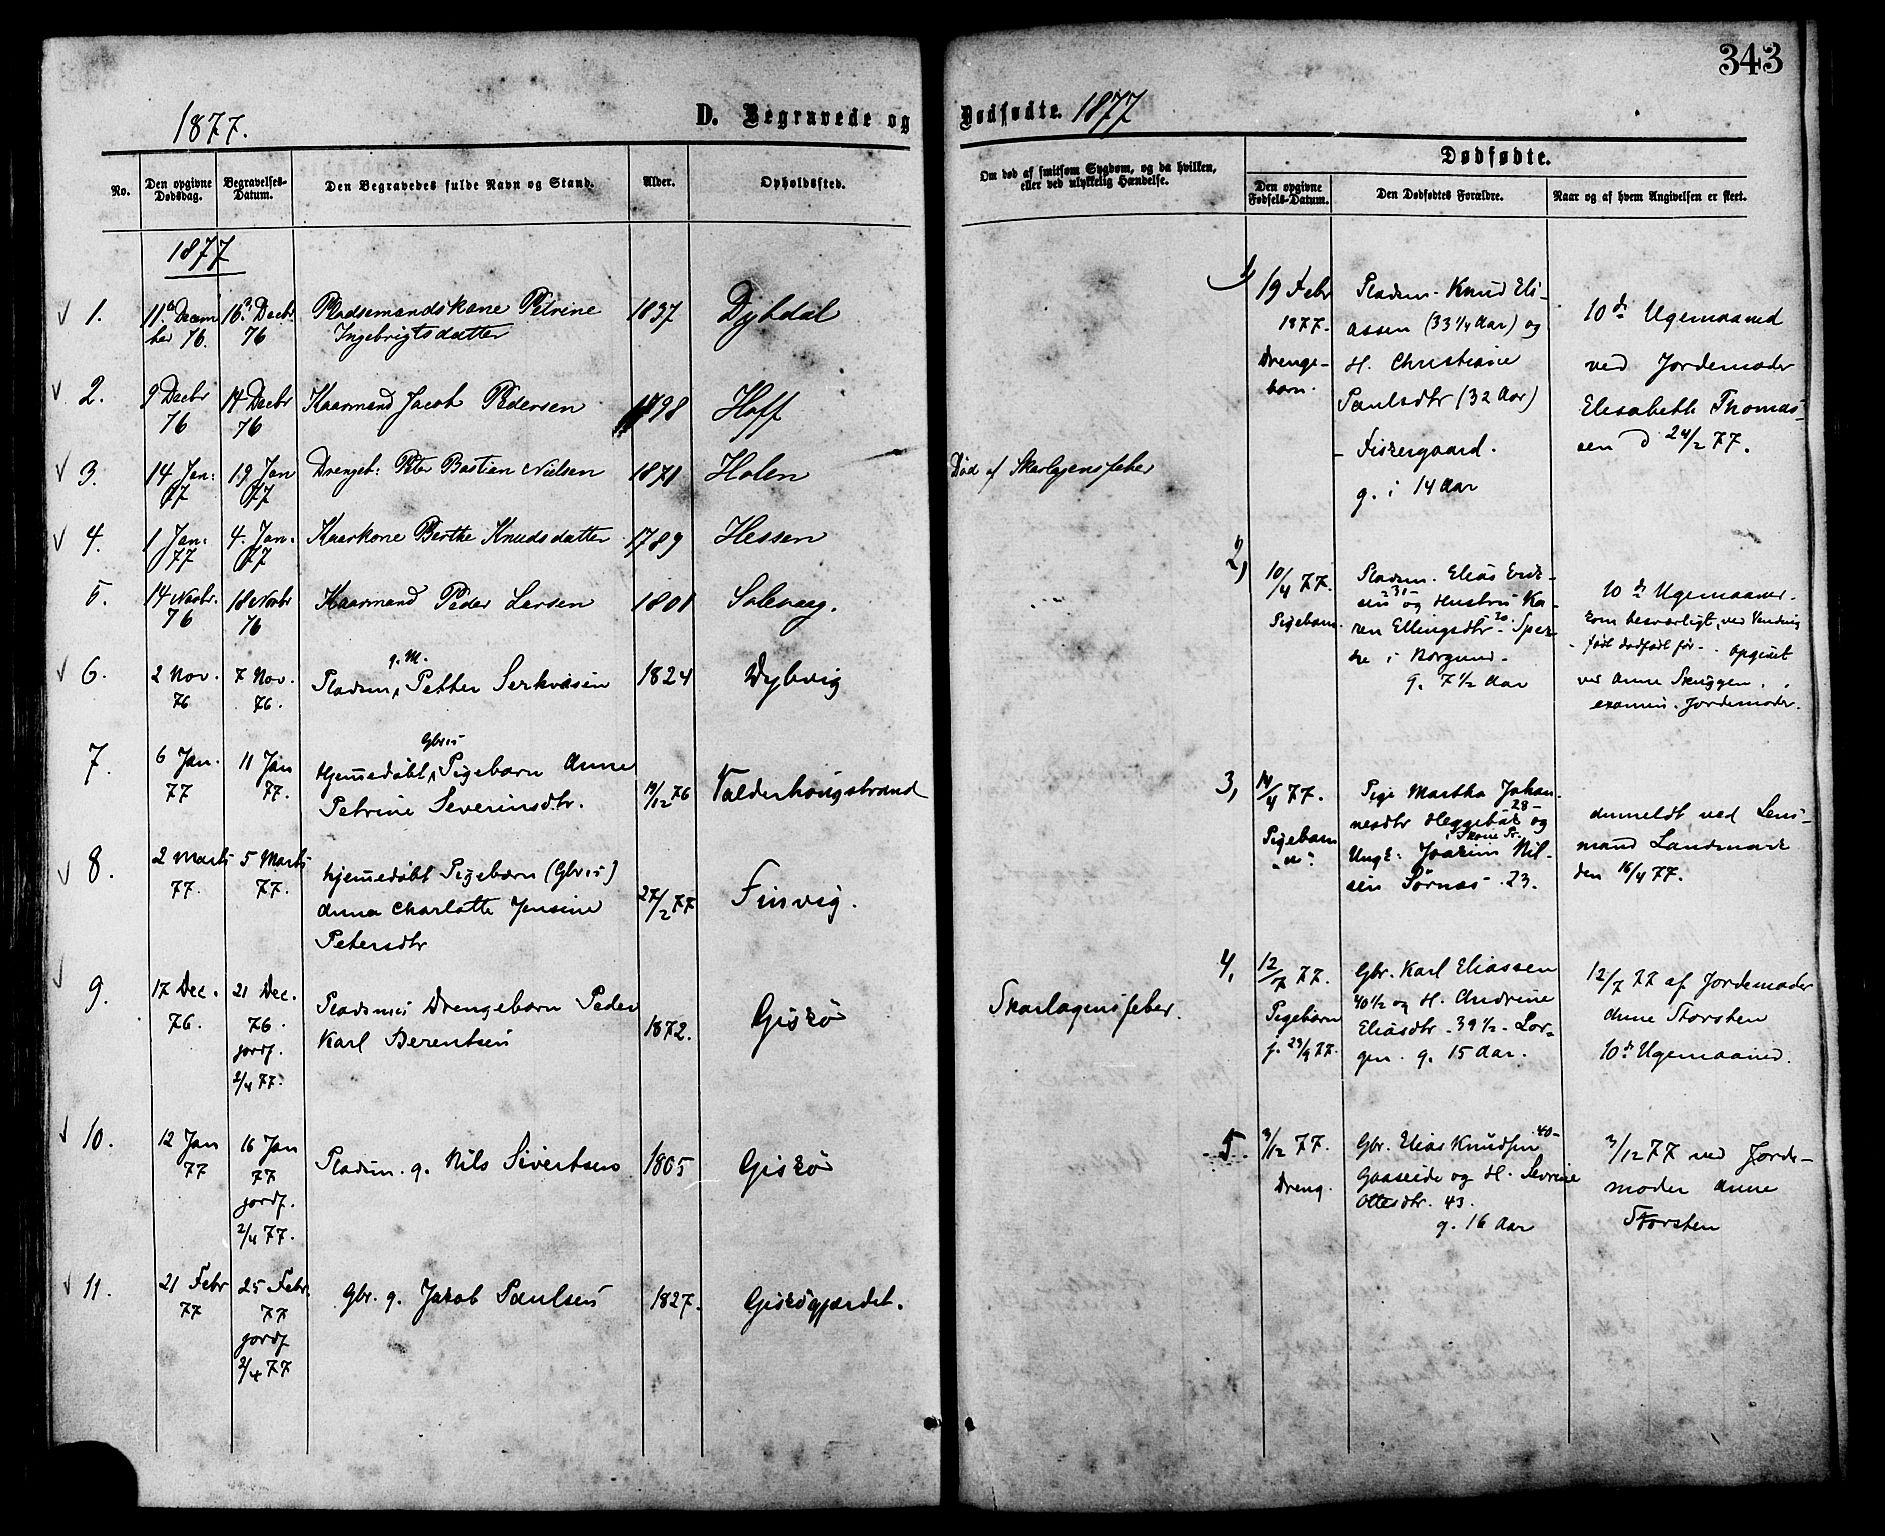 343
1877.
D. Begravede og Dødfødte. 1877
No.
Den opgivne Dødsdag.
Begravelses-Datum.
Den Begravedes fulde Navn og Stand.
Alder.
Opholdssted.
Om død af smitsom Sygdom, og da hvilken, eller ved ulykkelig Hændelse.
Dødfødte.
Den opgivne Fødsels-Datum.
Den Dødfødtes Forældre.
Naar og af hvem Angivelsen er skeet.
1877
1. 11te Decem 16de Decbr Pladsemandskone Petrine 1837 Dybdal
ber 76. 76 Ingebrigtsdatter
2. 9 Decbr 14 Decbr Kaarmand Jacob Pedersen 1798 Hoff
76 76
3. 14 Jan: 19 Jan Drengeb: Peter Bastian Nielsen 1871 Holen Død af Skarlagensfeber
77 77
4. 1 Jan: 4. Jan. Kaarkone Berthe Knudsdatter 1789 Hessen
77 77
5. 14 Novbr. 18 Novbr Kaarmand Peder Larsen 1801
76 76
g. M.
6. 2 Nov. 7 Nov. Pladsm, Petter 1824 Dybvig
76 76.
Gbr
7. 6 Jan. 11 Jan Hjemmedøbt, Pigebarn Anne
77 77. Petrine Severinsdtr. 19/12 76 Valderhougstrand
8. 2 Marts 5 Marts hjemmedøbt Pigebarn (Gbr)
77. 77. Anna Charlotte Jensine 27/2 77 Finvig.
Petersdtr
9. 17 Dec. 21 Dec. Pladsm Drengebarn Peder
76. 76. Karl Berentsen 1872. Giskø Skarlagensfeber.
jordf.
2/4 77.
10. 12 Jan 16 Jan Pladsm. g. Nils Sivertsen 1805 Giskø
77 77
jordf.
2/4 77.
11. 21 Febr 25 Febr. Gbr. g. Jakob Paulsen 1827. Giskøgjerdet.
77 77
jordf
2/4 77
1, 19 Febr Pladsm. Knud Eli-
1877. assen (33 1/4 Aar) og 10de Ugemaaned
Drenge- H. Christiane ved Jordemoder
barn. Paulsdtr (32 Aar) Elisabeth Thomas-
- Fiskergaard. sen d 24/2 77.
g. i 14 Aar
2, 10/4 77. Pladsm. Elias Erik-
sen 31 og Hustru Ka- 10de Ugemaaned.
Pigebarn. ren Ellingsdtr 30 kom besværligt, ved Vending
i Borgund. født dødfødt opgivet
g. 7 1/2 Aar ved Anne
examin. Jordemoder.
3, 14/4 77. Pige Martha Johan-
nesdtr 28 og anmeldt ved Lens-
Pigebarn Ungk: Joakim Nil- mand Landmark
sen Sørnæs 23. den 16/4 77.
4, 12/7 77. Gbr. Karl Eliassen 12/7 77 af Jordemoder
Pigebarn 40 1/2 og H. Andrine Anne Storsten
j. 23/9 77. Eliasdtr. 39 1/2. 10de Ugemaaned.
g. 15 Aar.
5. 3/12 77. Gbr. Elias Knudsen 40 3/12 77 ved Jorde-
Dreng. Gaaseide og H. Sevrine moder Anne
Ottesdtr. 43. Storsten
g. 16 Aar